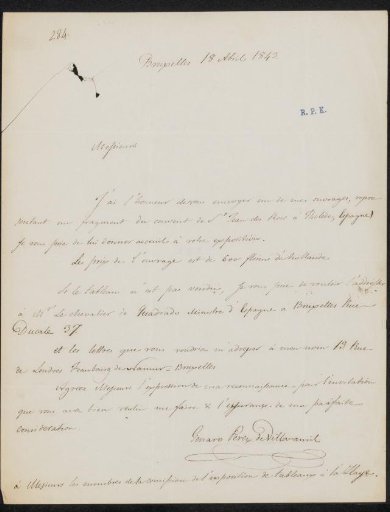 284
Bruxelles 18 Abril 1843
R.P.K.
Messieurs
J'ai l'honneur de vous envoyer un de mes ouvrages, repre-
sentant un fragment du couvent de Sn Jean des Rois à Tolède, (Espagne)
Je vous prie de lui donner à votre exposition.
Le prix de l'ouvrage est de 600 florins de hollande.
Si le tableau n'est pas vendu, je vous prie de vouloir l'addresser
à Mr. Le chevalier de Quadrado Ministre d'Espagne a Bruxelles Rue
Ducale 37
et les lettres que vous voudrez m'adresser à mon nom 13 Rue
de Londres Feaubourg de Namur = Bruxelles
Agréez Messieurs l'expression de ma reconnaissance pour l'invitation
que vous avez bien voulu me faire & l'assurance de ma parfaite
consideration
Genaro Perez de Villaamil
A Messieurs les membres de la comission de l'exposition de tableaux à la Haye.